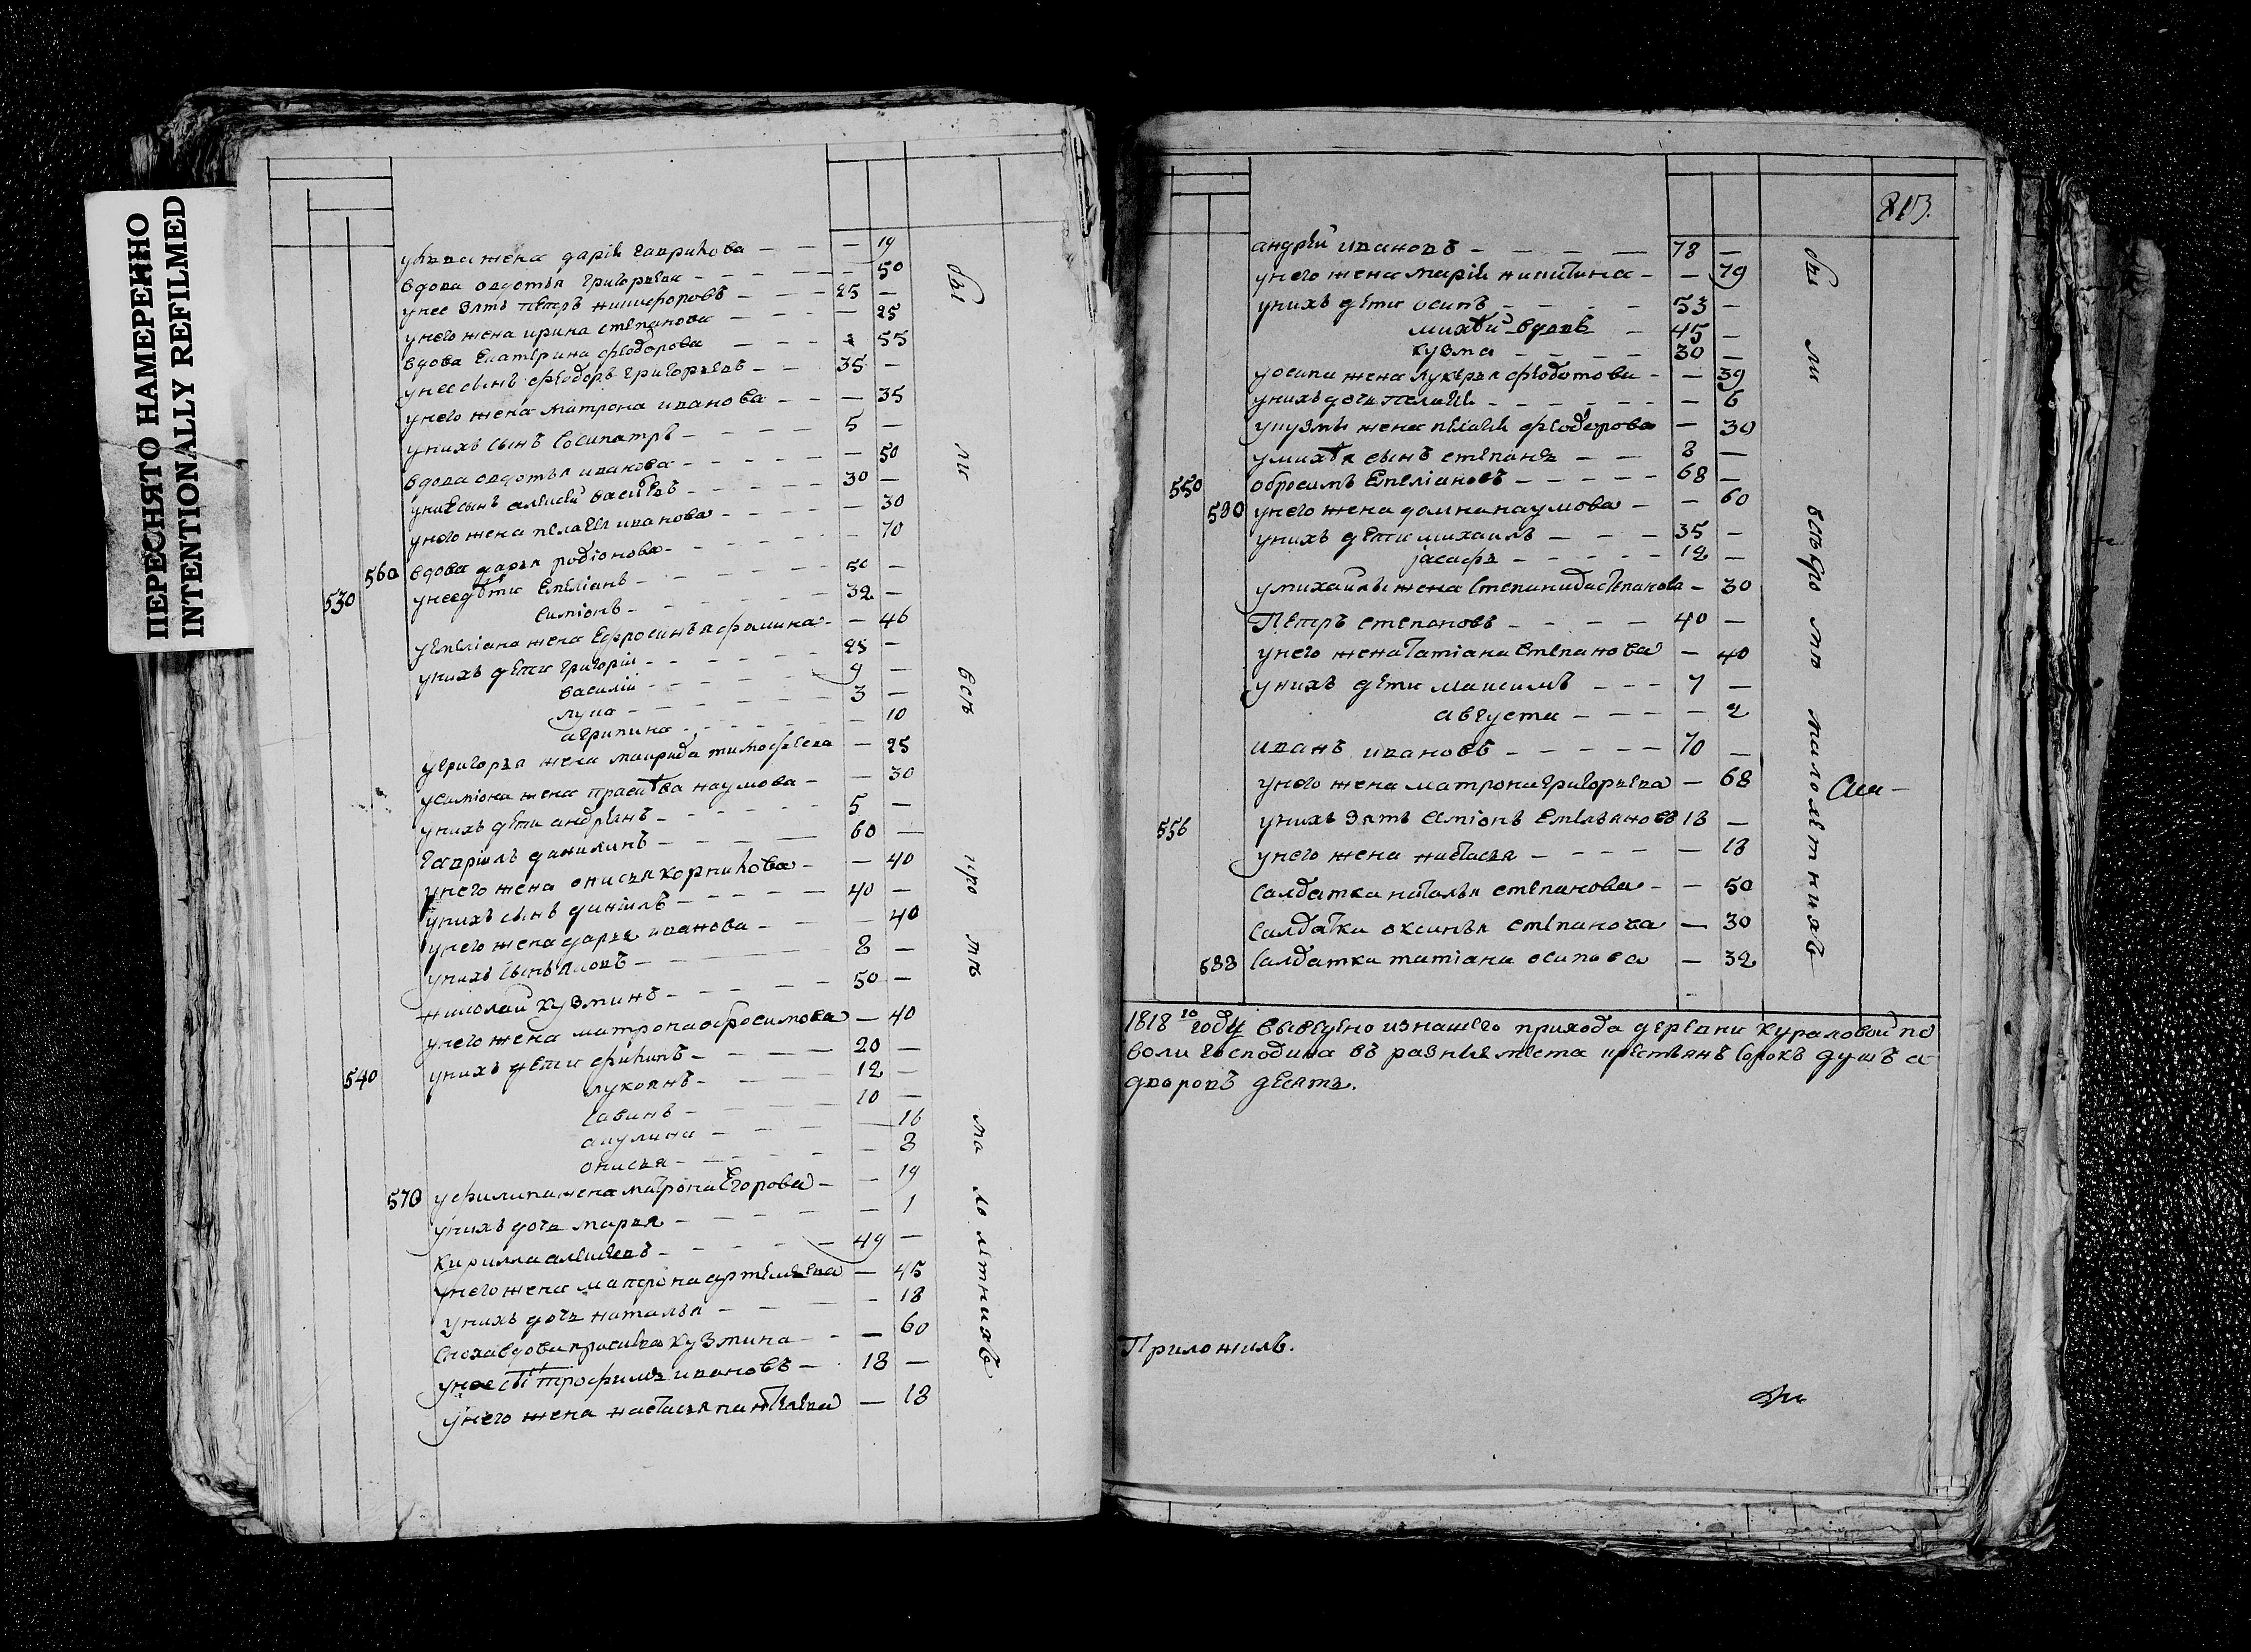 ПЕРЕСНЯТО НАМЕРЕННО
INTENTIONALLY REFILMED
жена дарія гаврилова — — — 19
вдова авдотья григорьева — — — 50
у нее зять петръ никифоровъ — — — 25 —
у него жена ирина степанова — — — 25
вдова екатерина феодорова — — — 55
у нее сынъ феодоръ григорьевъ — — 35 —
у него жена матрона иванова — — — 35
у нихъ сынъ сосипатръ — — — 5 —
вдова авдотья иванова — — — 50
сынъ алексей — — — 30 —
у него жена пелагея иванова — — — 30
560 вдова дарья родіонова — — — 70
530 у нее дѣти емеліанъ — — — 50 —
симіонъ — — — 32 —
у емеліана жена ефросинья фомина — — 46
у нихъ дети григорій — — — 25 —
василій — — — 9 —
лука — — — 3 —
агрипина — — — 10
у григорья жена маврида тимофеева — 25
у симіона жена прасковья наумова — — 30
у нихъ дети андреянъ — — — 5 —
гавріилъ данилинъ — — — 60 —
у него жена онисья корнилова — — 40
у нихъ сынъ даніилъ — — — 40 —
у него жена дарья иванова — — — 40
у нихъ сынъ іаковъ — — — 8 —
николай кузминъ — — — 50 —
у него жена матрона обросимова — 40
540 у нихъ дети филипъ — — — 20 —
лукоянъ — — — 12 —
савинъ — — — 10 —
акулина — — — 16
онисья — — — 3
570 у филипа жена матрона егорова — — 19
у нихъ дочь марья — — — 1
кирилла алексеевъ — — — 49 —
у него жена матрона артемьева — 45
у нихъ дочь наталья — — — 18
сноха вдова прасковья кузмина — — 60
у нее трофимъ ивановъ — 18 —
у него жена настасья пантелеева — 18
бы
ли
всѣ
кро
мѣ
ма
ло
летнихъ
813.
андрей ивановъ — — — 78 —
у него жена марія никитина — — 79
у нихъ дети осипъ — — — 53 —
михей вдовъ — 45 —
кузма — — — 30 —
у осипа жена лукерья феодотова — — 39
у нихъ дочь пелагея — — — 6
у кузмы жена пелагея феодорова — 30
у михея сынъ степанъ — — 8 —
550 обросимъ емеліановъ — — — 68 —
580 у него жена домна наумова — — 60
у нихъ дети михаилъ — — — 35 —
іасафъ — — — 12 —
у михаилы жена степанида степанова — 30
Петръ степановъ — — — 40 —
у него жена татіана степанова — 40
у нихъ дети максимъ — — — 7 —
августа — — — 2
иванъ ивановъ — — — 70 —
у него жена матрона григорьева — 68
556 у нихъ зять симіонъ емельяновъ 18 —
у него жена настасья — — — 18
салдатка наталья степанова — — 50
салдатка оксинья степанова — 30
588 салдатка татіана осипова — 32
бы
ли
всѣ кро мѣ малолетнихъ
1818 го году выведено из нашего прихода деревни кураловой по
воли господина въ разныя места крестьянъ сорокъ душъ а
дворовъ десять.
Приложилъ.